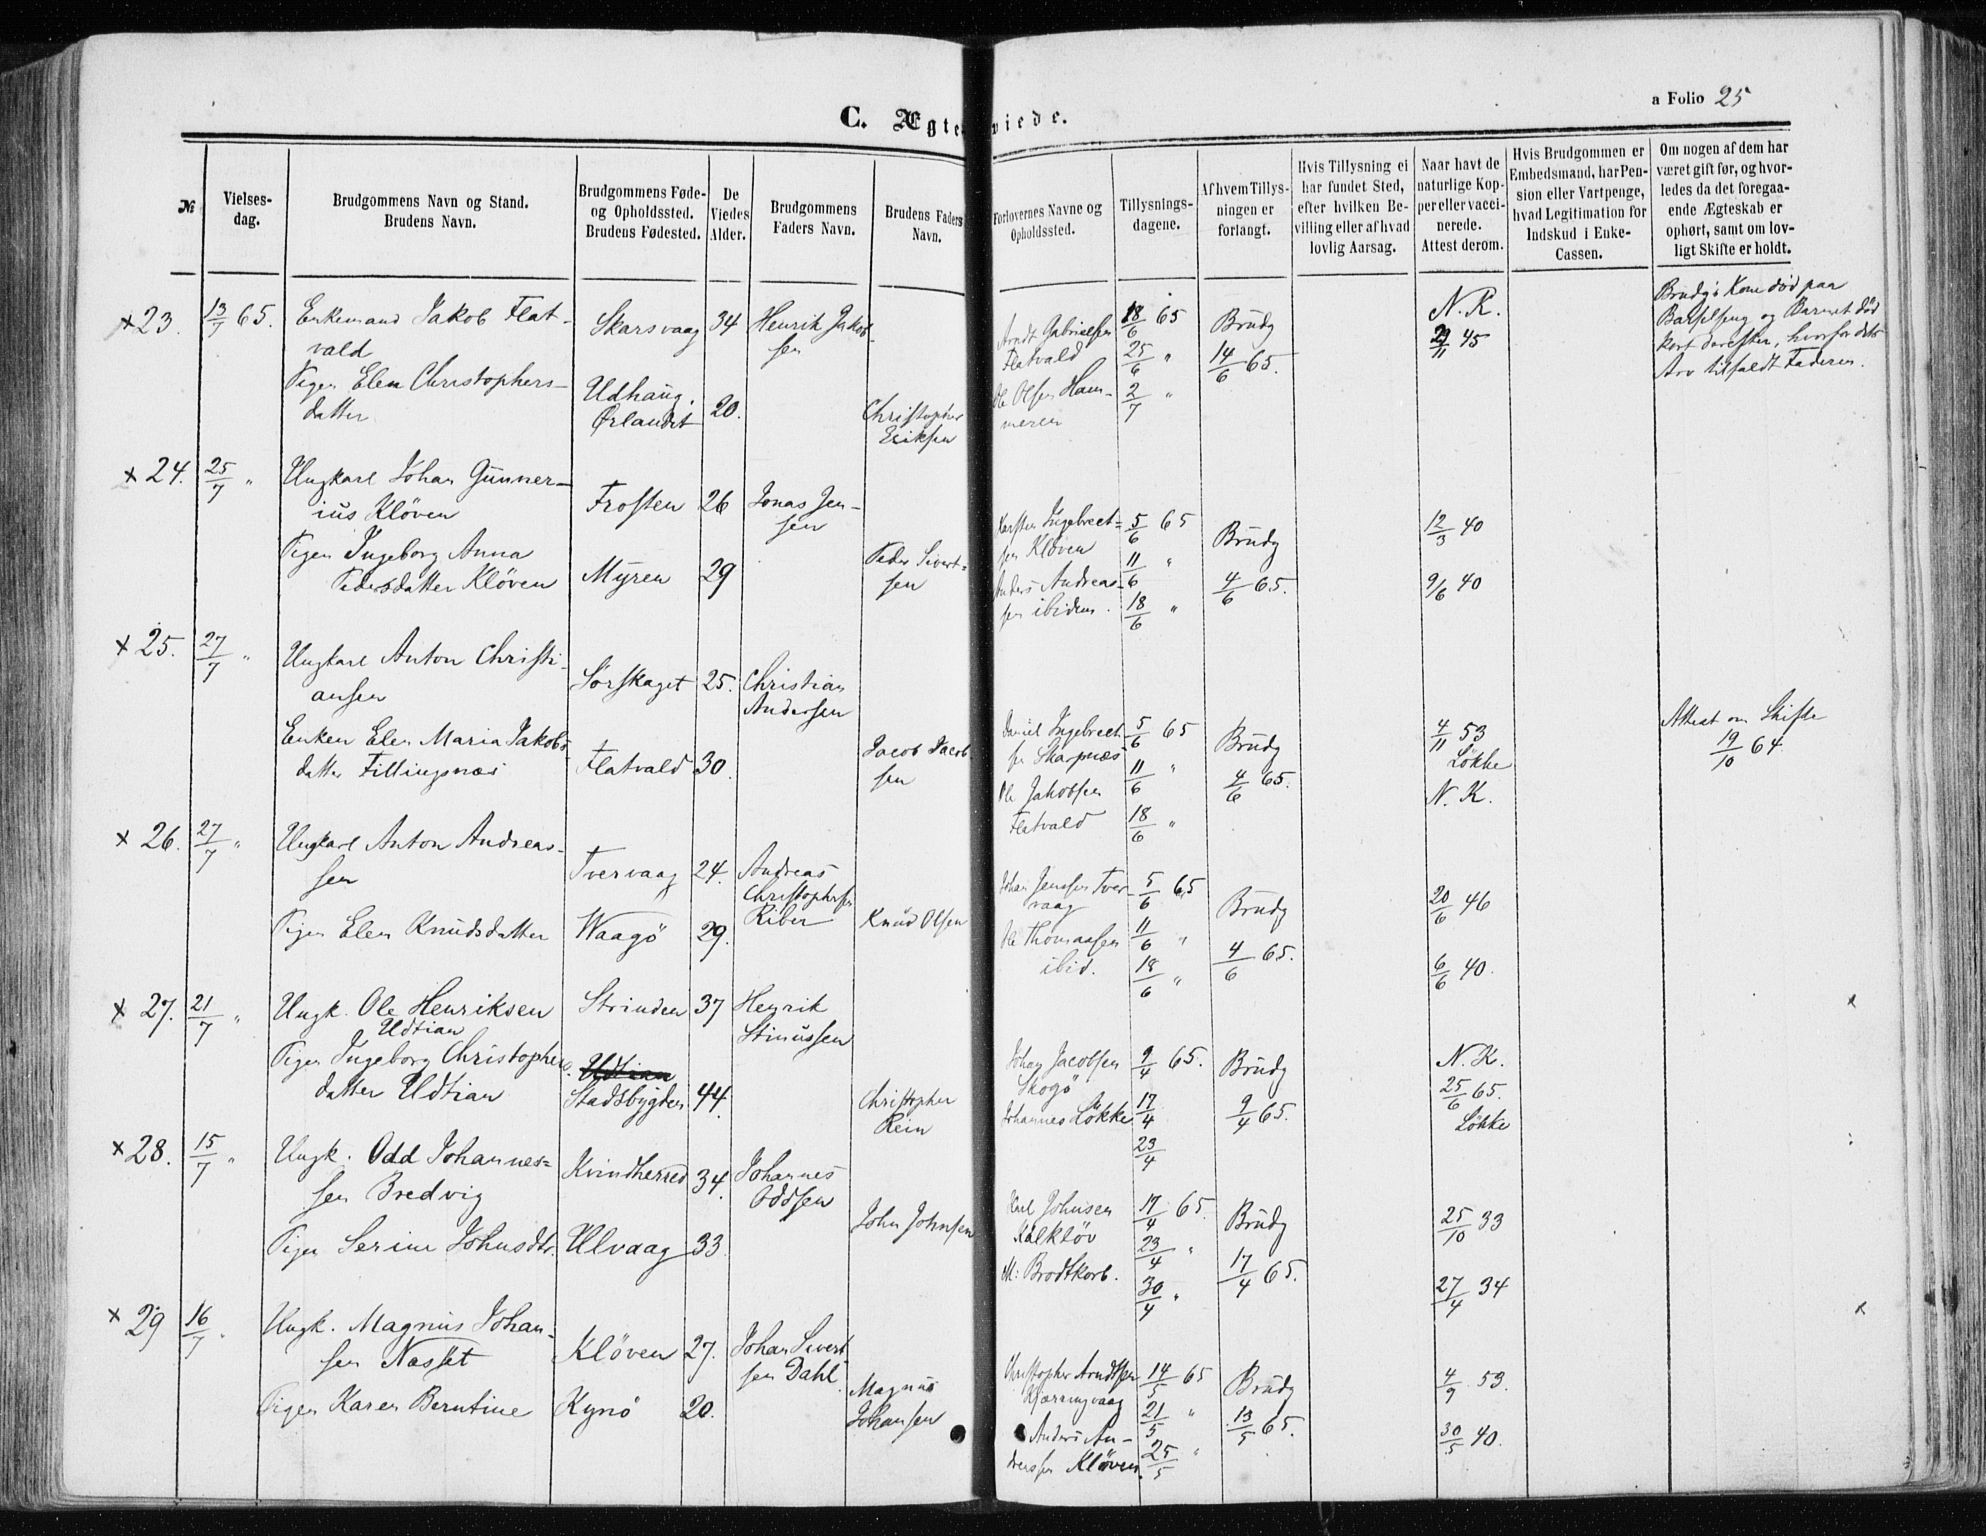 C. Ægteviede.
a Folio 25
№
Vielses-
dag.
Brudgommens Navn og Stand.
Brudens Navn.
Brudgommens Føde-
og Opholdssted.
Brudens Fødested.
De
Viedes
Alder.
Brudgommens
Faders Navn.
Brudens Faders
Navn.
Forlovernes Navne og
Opholdssted.
Tillysnings-
dagene.
Af hvem Tillys-
ningen er
forlangt.
Hvis Tillysning ei
har fundet Sted,
efter hvilken Be-
villing eller af hvad
lovlig Aarsag.
Naar havt de
naturlige Kop-
per eller vacci-
nerede.
Attest derom.
Hvis Brudgommen er
Embedsmand, har Pen-
sion eller Vartpenge,
hvad Legitimation for
Indskud i Enke-
Cassen.
Om nogen af dem har
været gift før, og hvor-
ledes da det foregaa-
ende Ægteskab er
ophørt, samt om lov-
ligt Skifte er holdt.
x 23. 13/7 65.
Enkemand Jakob Flat-
vald
Skarsvaag 34
Henrik Jakob-
sen
Pigen Elen Christophers-
datter
Udhaug.
Ørlandet 20.
Christopher
Eriksen
Arndt Gabrielsen
Flatvald
Ole Olsen Ham-
meren
18/6 65
25/6 "
2/7 "
Brudg
14/6 65.
N. K.
29/11 45
Brudg's Kone død paa
Barselseng og Barnet død
kort derefter, hvorfor dets
Arv tilfaldt Faderen.
x 24. 25/7 "
Ungkarl Johan Gunner-
ius Kløven
Frosten 26
Jonas Jen-
sen
Pigen Ingeborg Anna
Pedersdatter Kløven
Myren 29
Peder Sivert-
sen
Karsten Ingebrect-
sen Kløven
Anders Andreas-
sen ibidem.
5/6 65
11/6 "
18/6 "
Brudg
4/6 65.
12/3 40
9/6 40
x 25. 27/7 "
Ungkarl Anton Christi-
ansen
Sørskaget 25.
Christian
Andersen
Enken Elen Maria Jakobs-
datter Fillingsnæs
Flatvald 30.
Jacob Jacob-
sen
Daniel Ingebrect-
sen Skarpnæs
Ole Jakobsen
Flatvald
5/6 65
11/6 "
18/6 "
Brudg
4/6 65.
4/11 53
Løkke
N. K.
Attest om Skifte
19/10 64
x 26. 27/7 "
Ungkarl Anton Andreas-
sen
Tvervaag 24.
Andreas
Christophersen
Riber
Pigen Elen Knudsdatter
Waagø 29.
Knud Olsen
Johan Jensen Tver-
vaag
Ole Thomassen
ibid.
5/6 65
11/6 "
18/6 "
Brudg
4/6 65.
20/6 46
6/6 40.
x 27. 21/7 "
Ungk. Ole Henriksen
Udtian
Strinden 37
Henrik
Stinussen
Pigen Ingeborg Christophers-
datter Udtian
Udtian
Stadsbygden 44.
Christopher
Rein
Johan Jacobsen
Skogø
Johannes Løkke
9/4 65.
17/4
23/4
Brudg
9/4 65.
N. K.
25/6 65.
Løkke
x 28. 15/7 "
Ungk. Odd Johannes-
sen Bredvig
Kvindherred 34.
Johannes
Oddsen
Pigen Serine Johnsdtr.
Ulvaag 33.
John Johnsen
Karl Johnsen
Kalkløv
M: Brodtkorb.
17/4 65.
23/4 "
30/4 "
Brudg
17/4 65.
25/10 33
27/4 34
x 29 16/7 "
Ungk. Magnus Johan-
sen Nasset
Kløven 27.
Johan Sivert-
sen Dahl
Pigen Karen Berntine
Kynø 20.
Magnus
Johansen
Christopher Arndtsen
Kjærringvaag
Anders An-
dreassen Kløven.
14/5 65
21/5 "
25/5 "
Brudg
13/5 65.
4/9 53.
30/5 40.